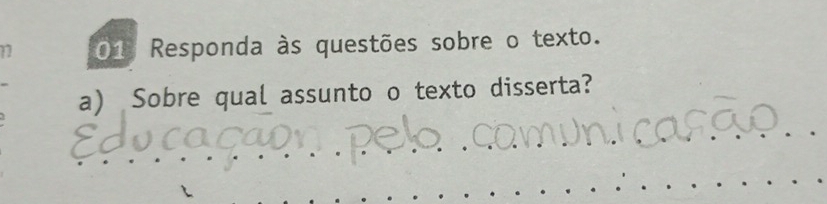 01 Responda às questões sobre o texto.
a) Sobre qual assunto o texto disserta?
Educação pelo comunicação